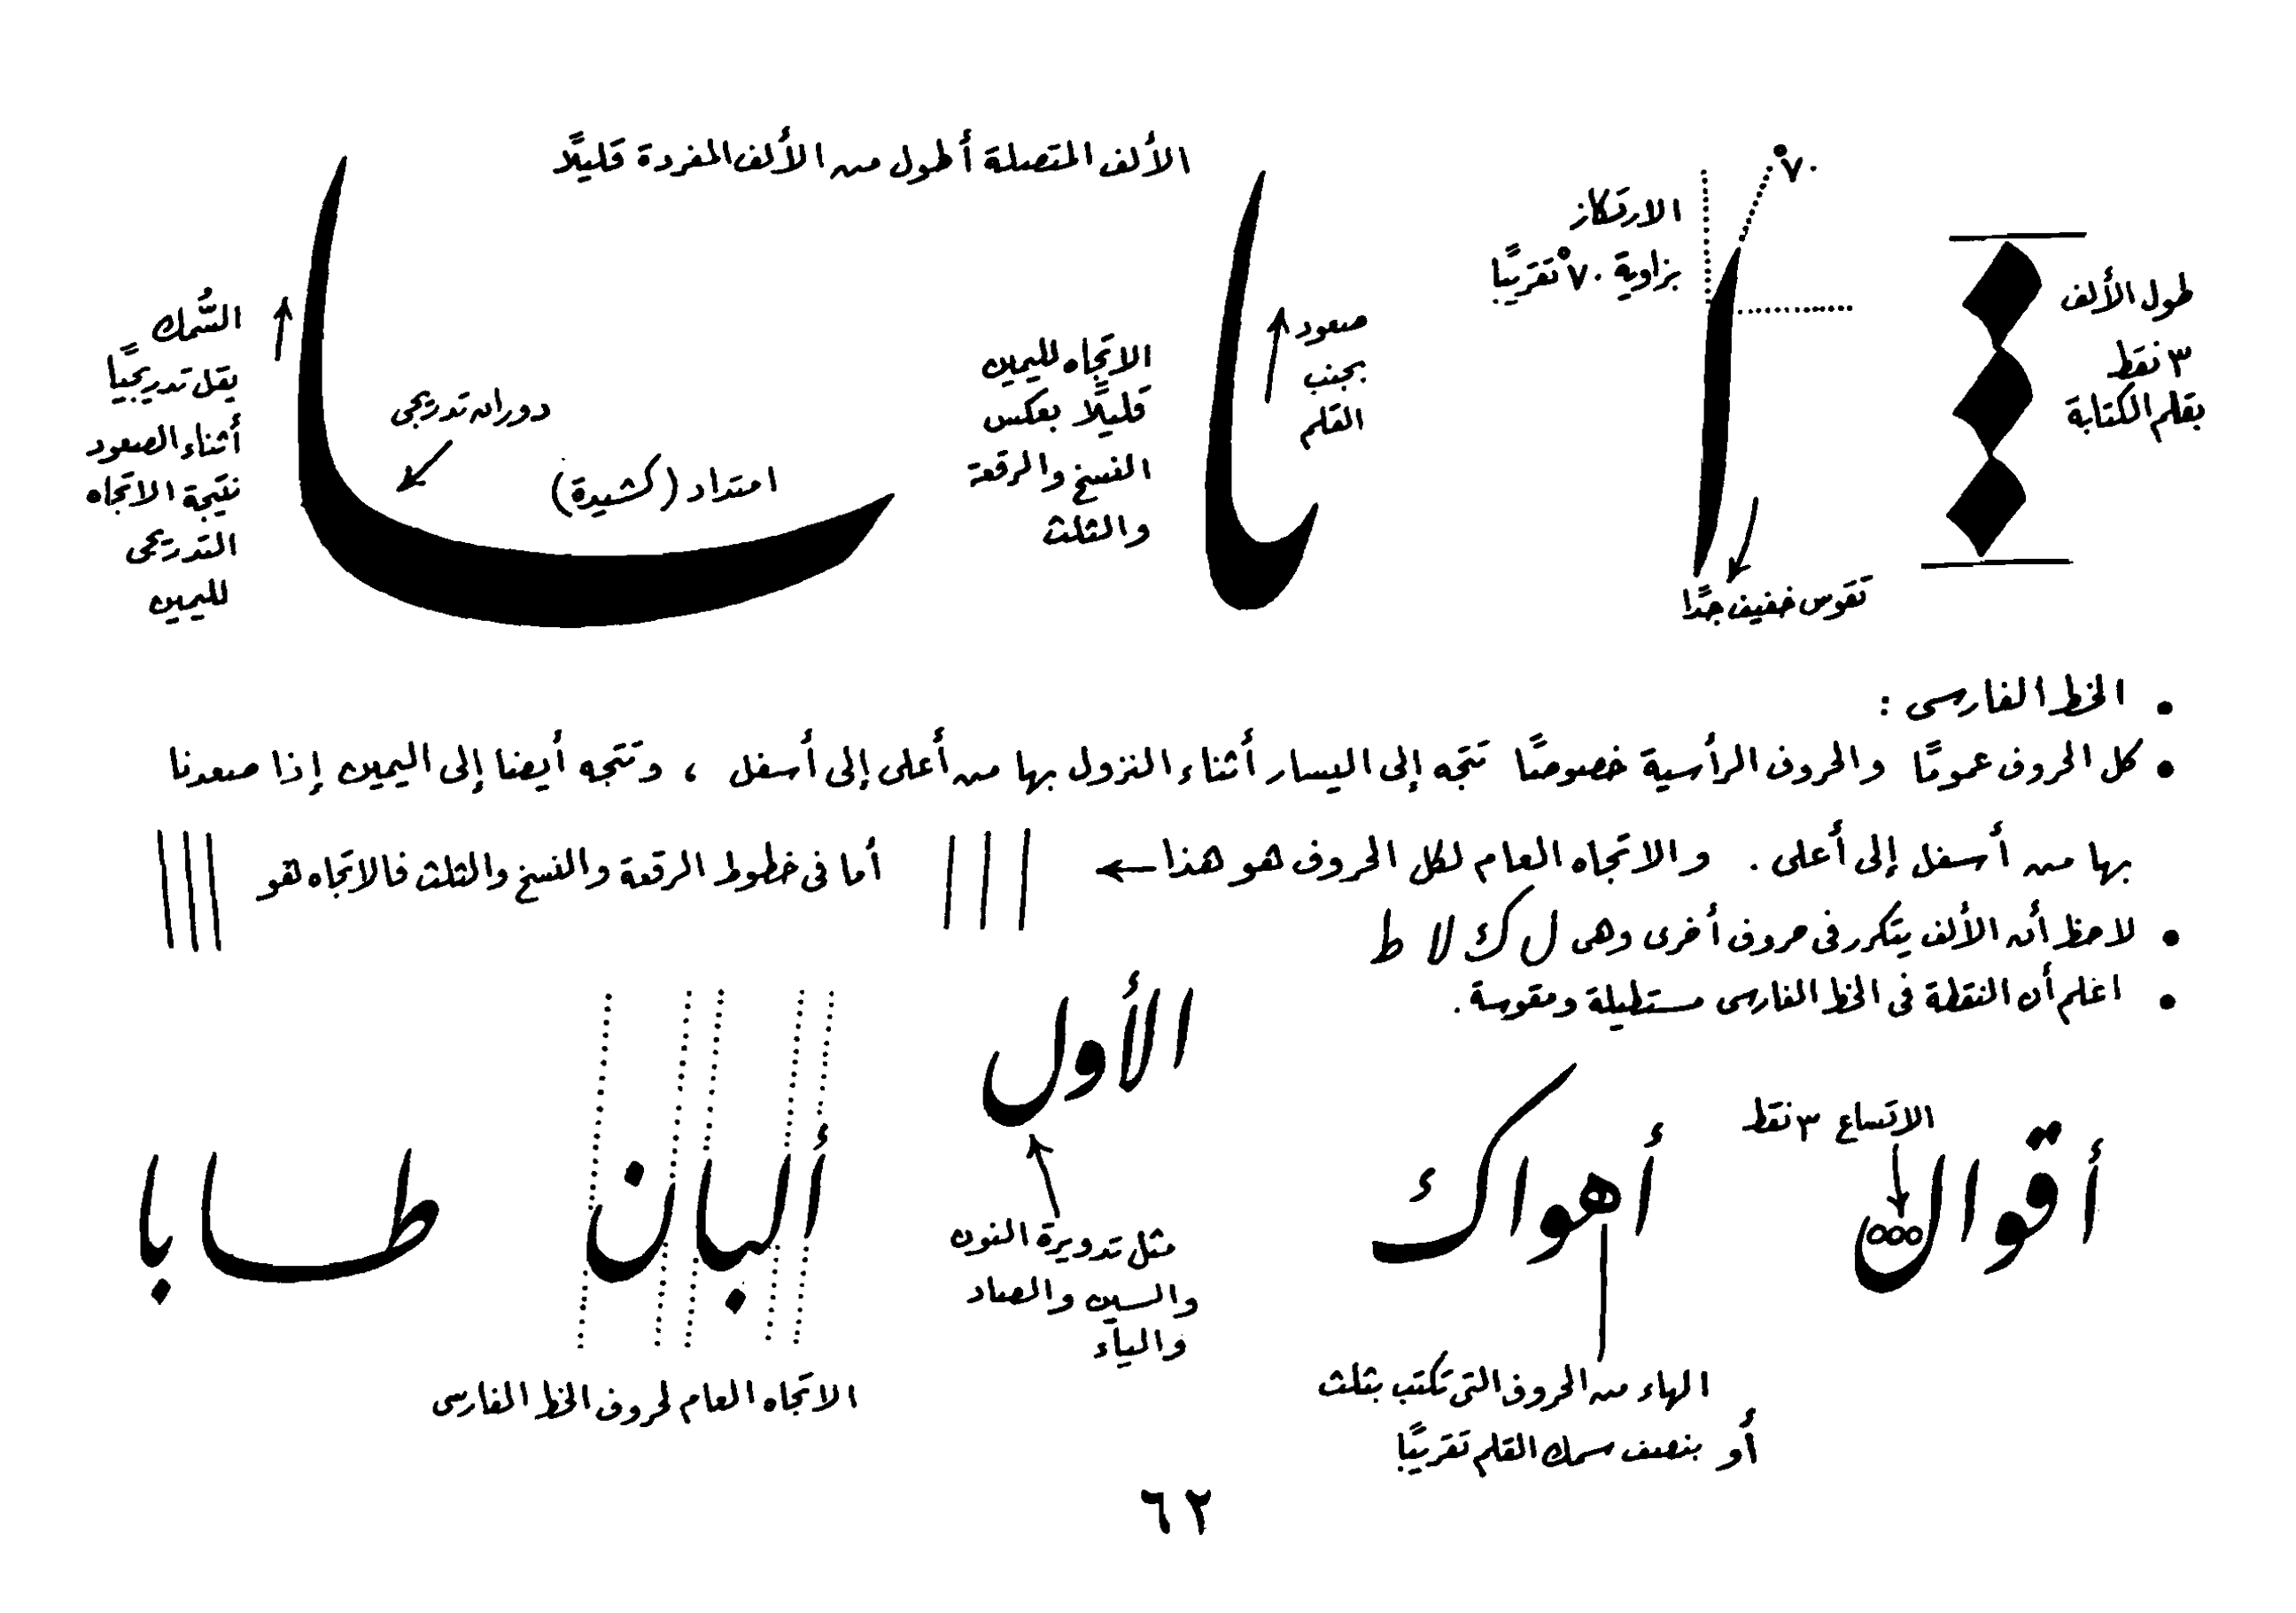 الألف المتصلة أطول من الألف المفردة قليلًا
٧٠°
الارتكاز
بزاوية ٧٠° تقريبًا
طول الألف
٣ نقط
بقلم الكتابة
تقوس خفيف جدًا
صعود
بجنب
القلم
الاتجاه لليمين
قليلًا بعكس
النسخ والرقعة
والثلث
با
دوران تدريجى
امتداد (كشيدة)
السُّمك
يقل تدريجيًا
أثناء الصعود
نتيجة الاتجاه
التدريجى
لليمين
• الخط الفارسى :
• كل الحروف عمومًا والحروف الرأسية خصوصًا تتجه إلى اليسار أثناء النزول بها من أعلى إلى أسفل ، وتتجه أيضا إلى اليمين إذا صعدنا
بها من أسفل إلى أعلى . والاتجاه العام لكل الحروف هو هذا ← أما فى خطوط الرقعة والنسخ والثلث فالاتجاه هو
• لاحظ أن الألف يتكرر فى حروف أخرى وهى ل ك لا ط
• اعلم أن النقطة فى الخط الفارسى مستطيلة ومقوسة .
الأول
مثل تدويرة النون
والسين والصاد
والياء
الاتساع ٣ نقط
أقوال
أهواك
ألبان
طابا
الهاء من الحروف التى تكتب بثلث
أو بنصف سمك القلم تقريبًا
الاتجاه العام لحروف الخط الفارسى
٦٢